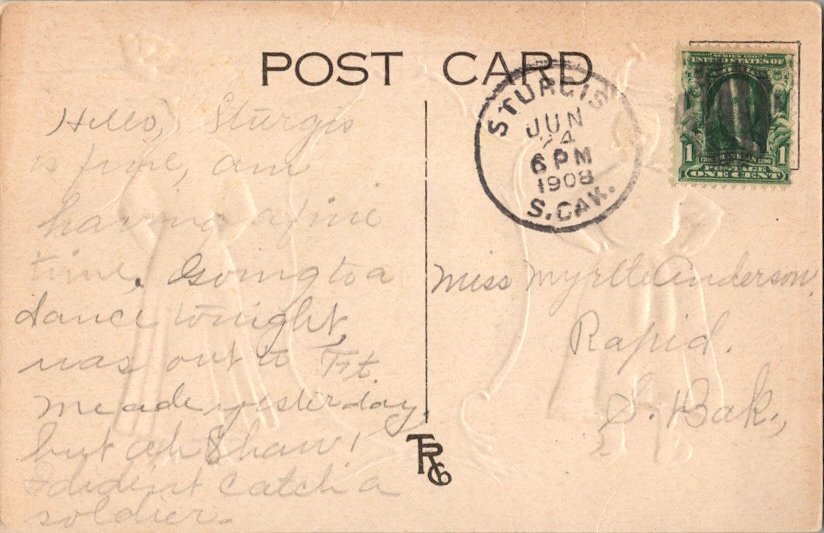 POST CARD
STURGIS
JUN
24
6 PM
1908
S. DAK.
SERIES 1902
UNITED STATES OF AMERICA
1 1
POSTAGE
ONE CENT
Hello, Sturgis
is fine, am
having a fine
time. Going to a
dance tonight,
was out to Ft
Meade yesterday,
but ah Shaw!
I didn't catch a
soldier.
Miss Myrtle Anderson,
Rapid.
S. Dak.,
TRG